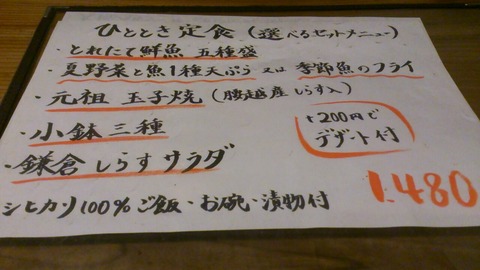 ひととき定食(選べるセットメニュー)
・とれたて鮮魚 五種盛
・夏野菜と魚1種天ぷら 又は 季節魚のフライ
・元祖 玉子焼(腰越産しらす入)
・小鉢三種
+200円で
デザート付
・鎌倉しらすサラダ
1.480
シヒカリ100%ご飯・お碗・漬物付